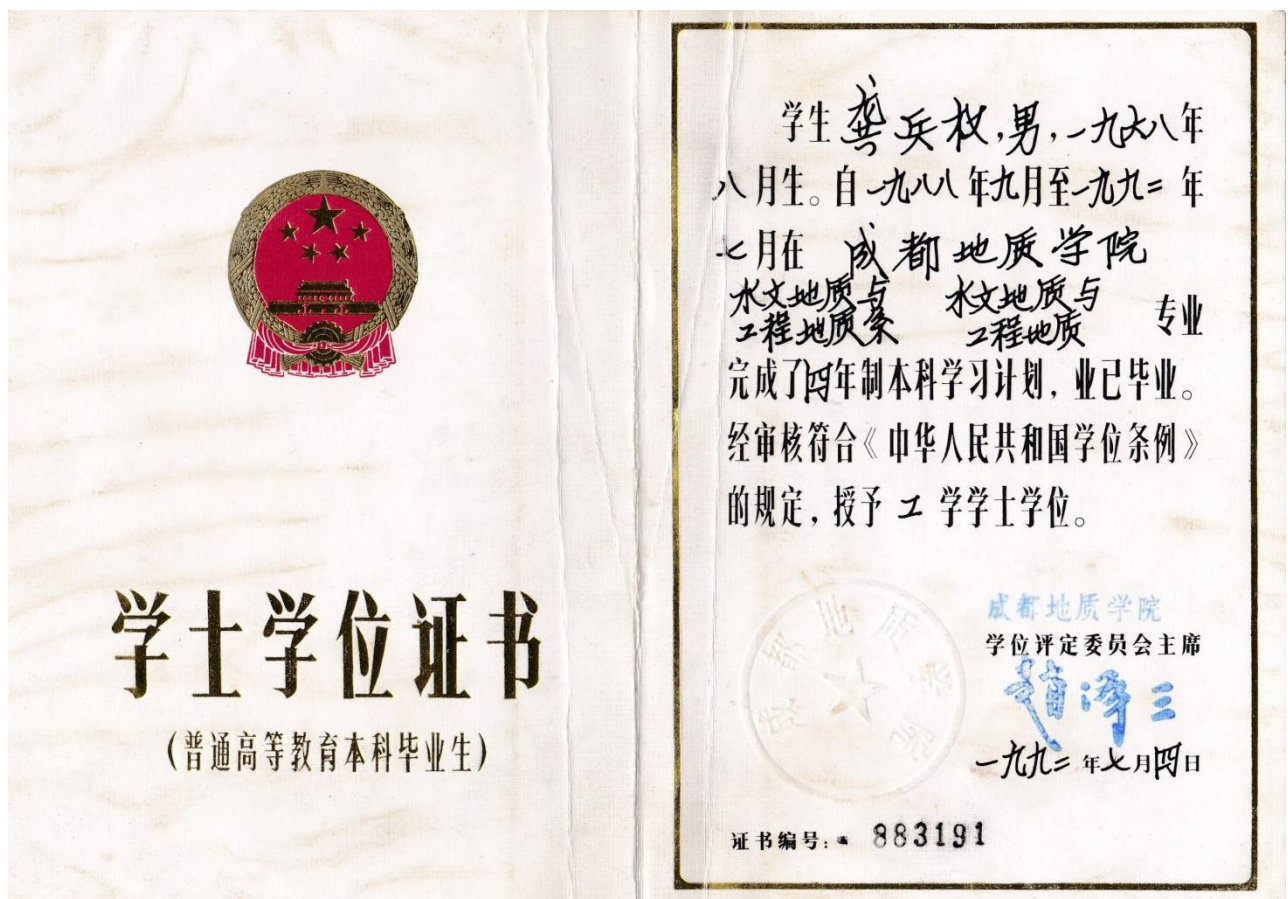 学士学位证书
(普通高等教育本科毕业生)
学生龚兵权,男,一九六八年
八月生。自一九八八年九月至一九九二年
七月在 成都地质学院
水文地质与 水文地质与
工程地质系 工程地质 专业
完成了四年制本科学习计划,业已毕业。
经审核符合《中华人民共和国学位条例》
的规定,授予工学学士学位。
成都地质学院
成都地质学院
学位评定委员会主席
赵泽三
一九九二年七月四日
证书编号: 883191